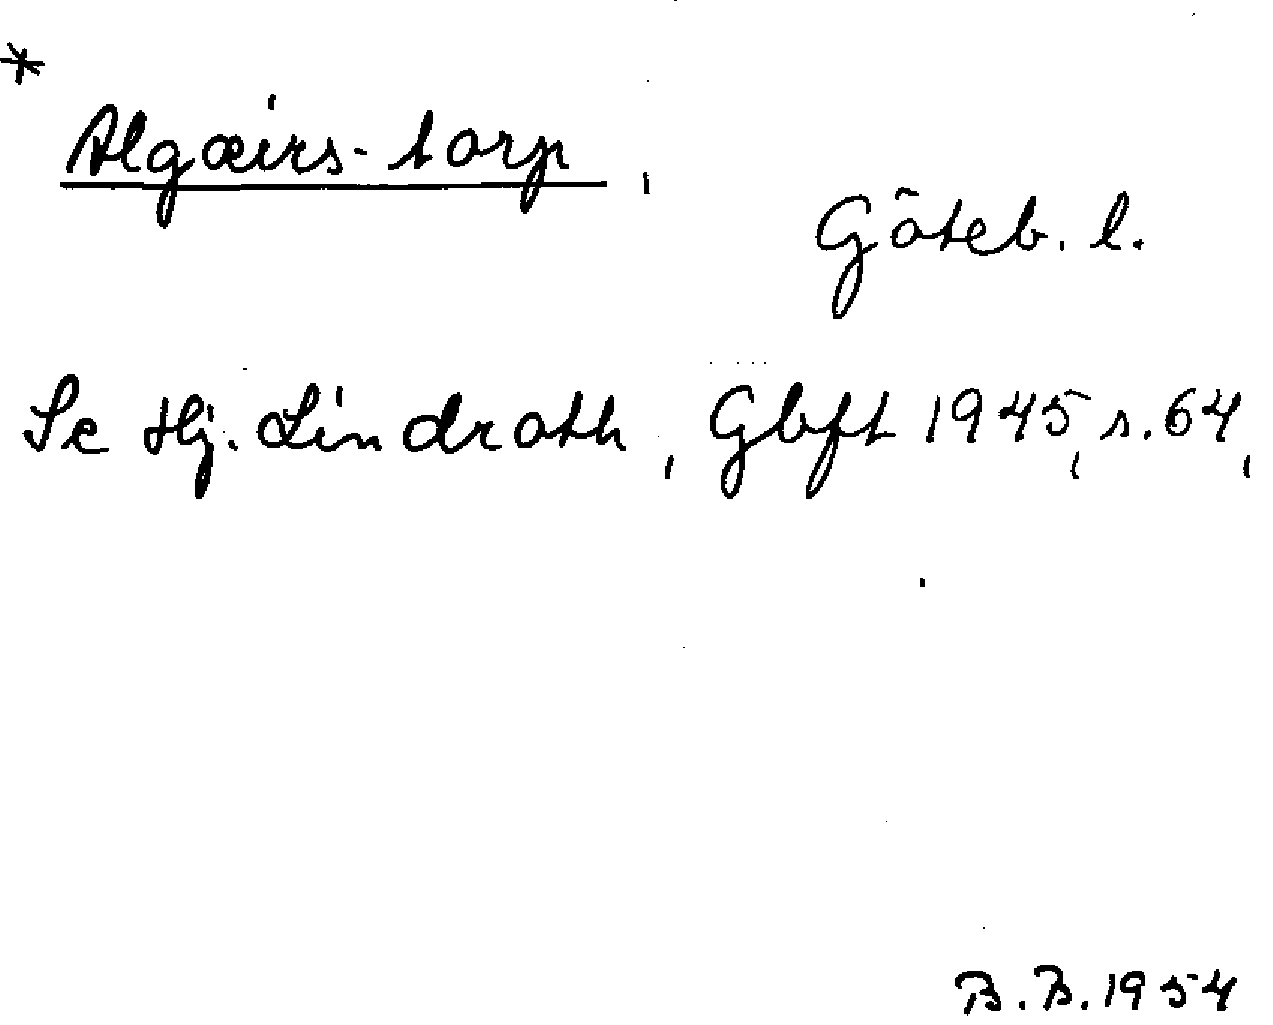 *
Algæirs-torp,
Göteb. l.
Se Hj. Lindroth, Gbft 1945, s. 64,
B.B. 1954